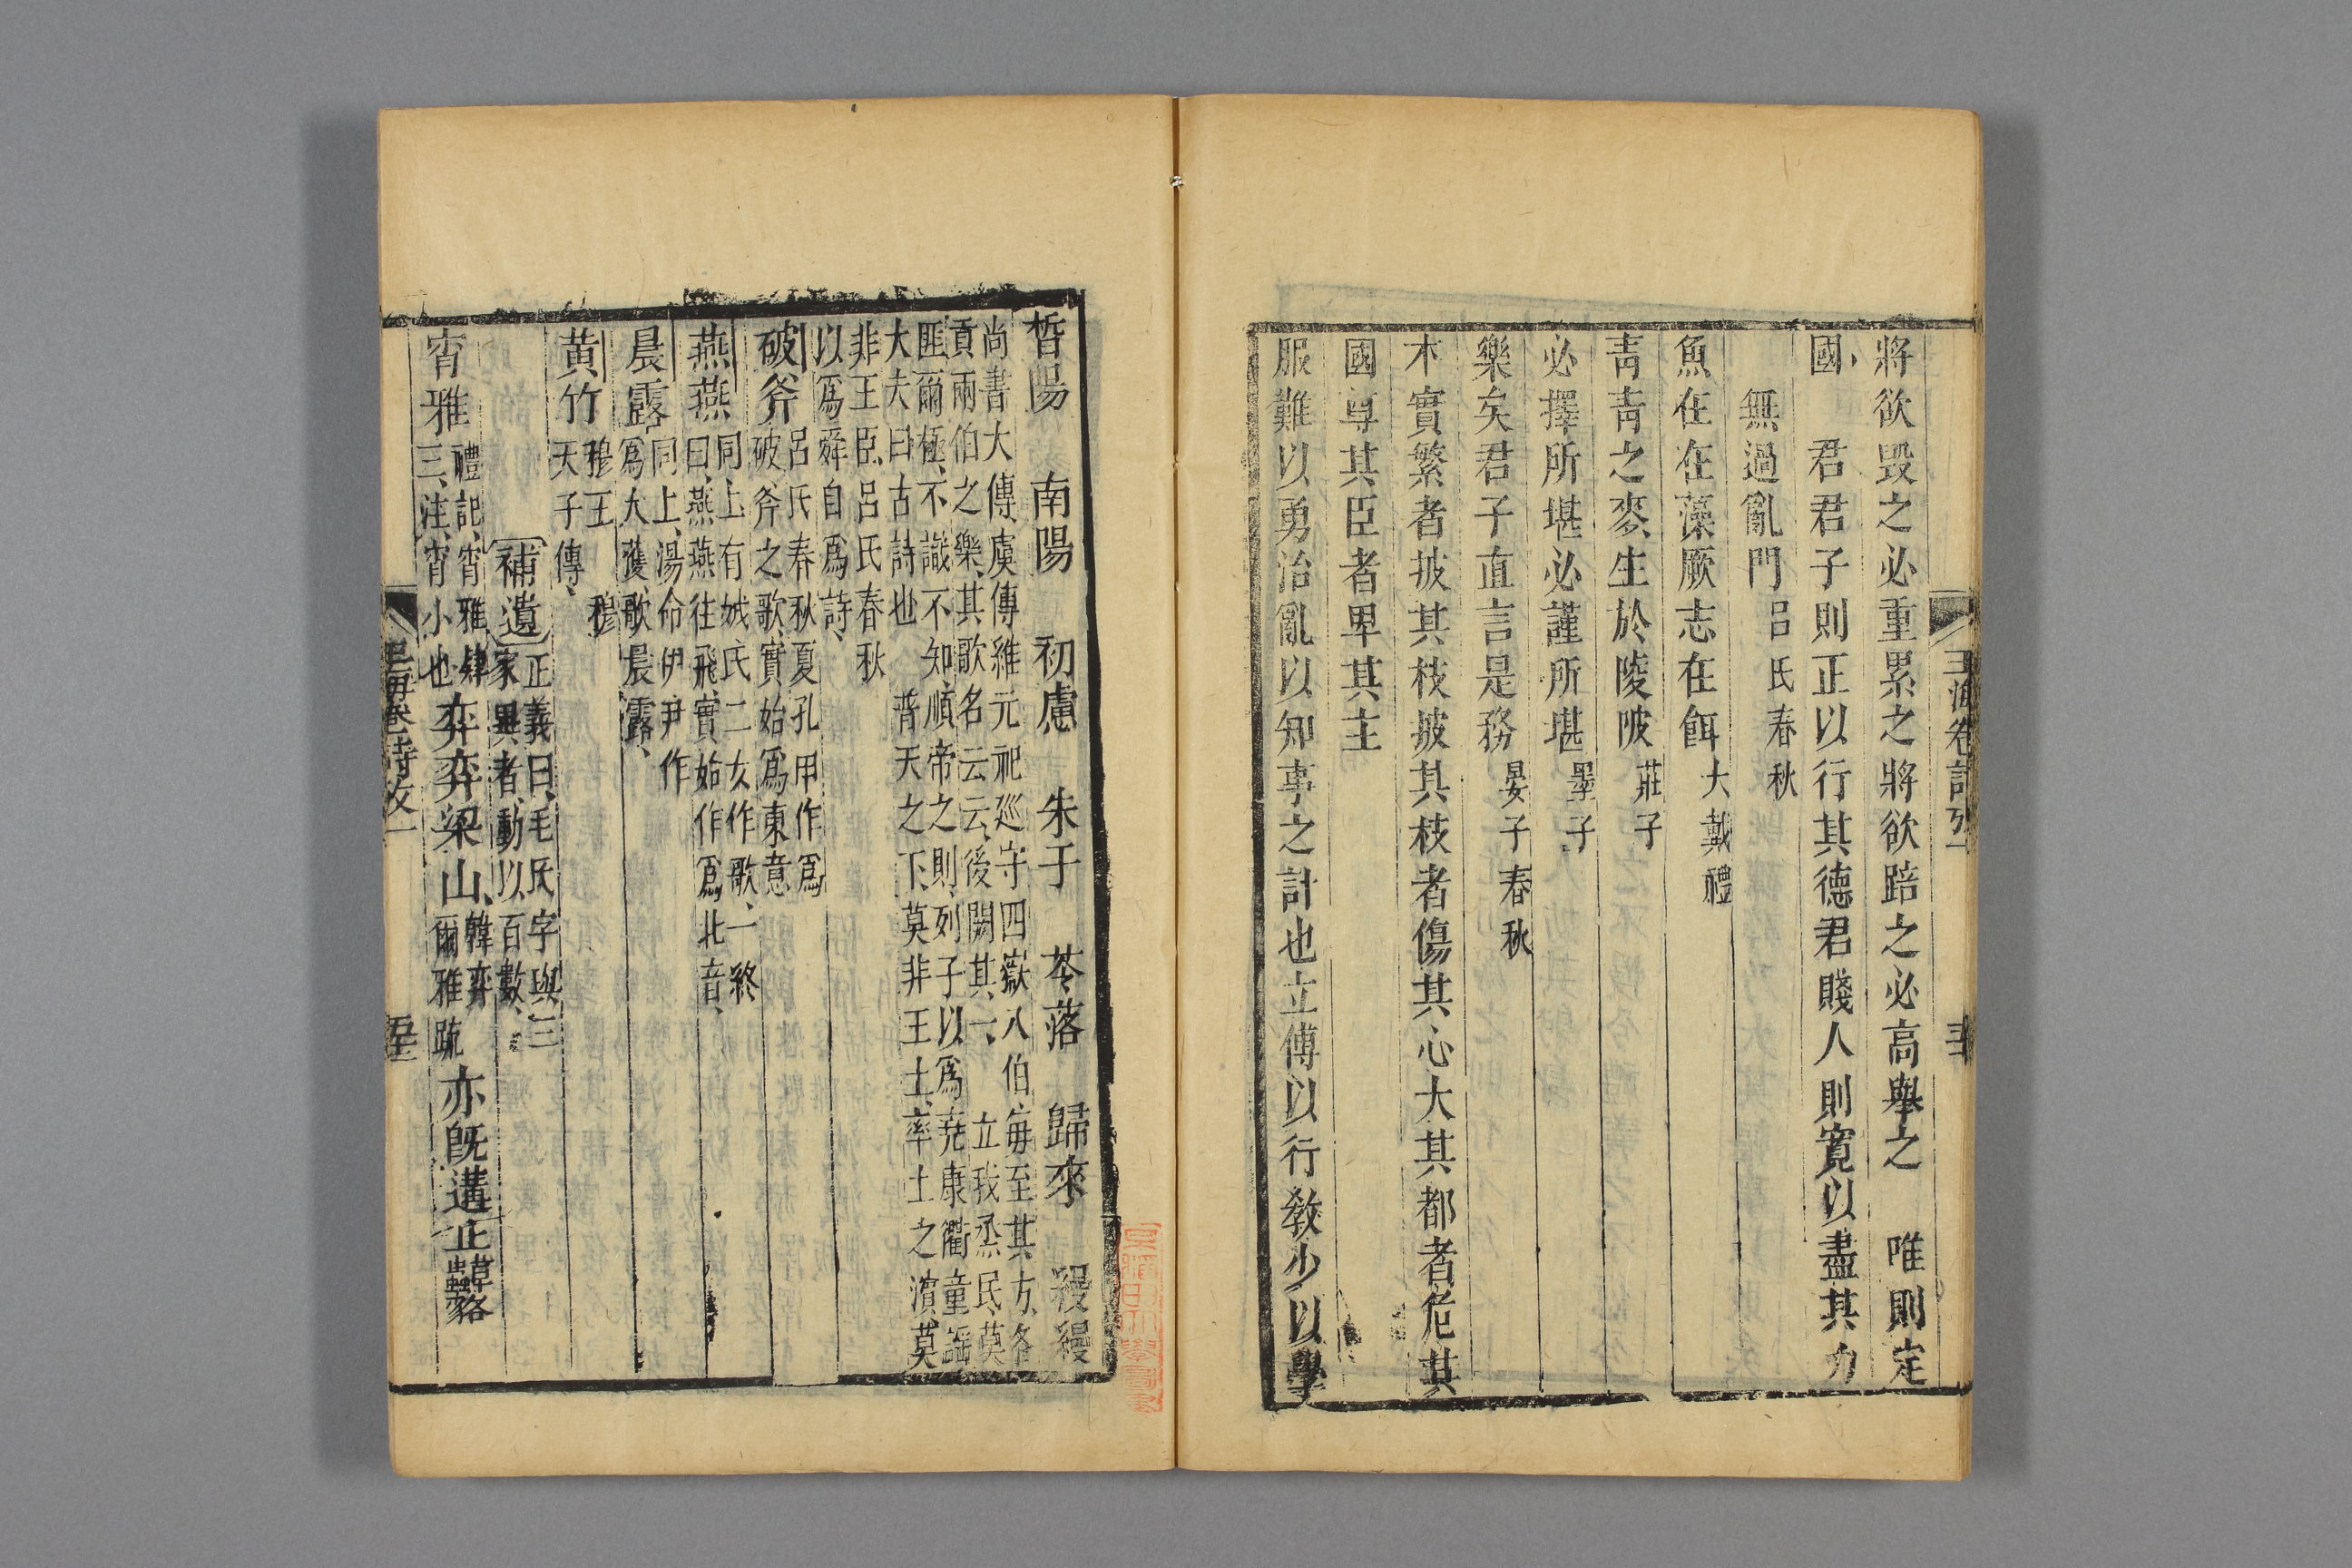 將欲毀之必重累之將欲踣之必高舉之　唯則定
國　君君子則正以行其德君賤人則寬以盡其力
無過亂門呂氏春秋
魚在在藻厥志在餌大戴禮
靑靑之麥生於陵陂莊子
必擇所堪必謹所堪墨子
樂矣君子直言是務晏子春秋
木實繁者披其枝披其枝者傷其心大其都者危其
國尊其臣者卑其主
服難以勇治亂以知事之計也立傅以行敎少以學
晳陽　南陽　初慮　朱于　苓落　歸來　縵縵
尚書大傳虞傳維元祀巡守四嶽八伯每至其方各
貢兩伯之樂其歌名云云後闕其一　立我烝民莫
匪爾極不識不知順帝之則列子以爲堯康衢童謡
大夫曰古詩也　普天之下莫非王土率土之濱莫
非王臣呂氏春秋
以爲舜自爲詩
破斧呂氏春秋夏孔甲作爲
破斧之歌實始爲東音
燕燕同上有娀氏二女作歌一終
曰燕燕往飛實始作爲北音
晨露同上湯命伊尹作
爲大護歌晨露
黃竹穆王　穆
天子傳
補遺正義曰毛氏字與三
家異者動以百數
宵雅禮記宵雅肄
三注宵小也奕奕梁山韓奕
爾雅疏亦既遘止